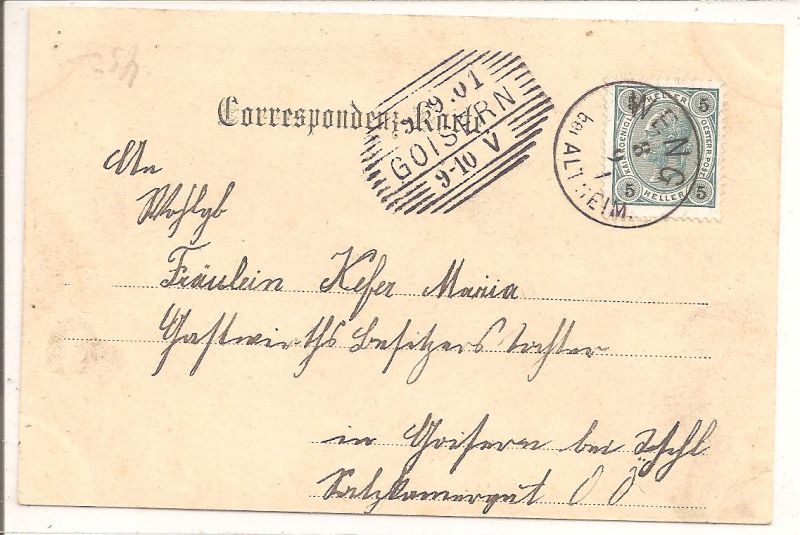 45
Correspondenz-Karte
9.01
GOISERN
9-10 V
WENG
8
bei ALTHEIM.
5 HELLER 5
KAIS. KOENIGL. OESTERR. POST
5 HELLER 5
An
Wohlgb
Fräulein Kefer Maria
Gastwirths Besitzers Tochter
in Goisern bei Ischl
Salzkamergut O Ö